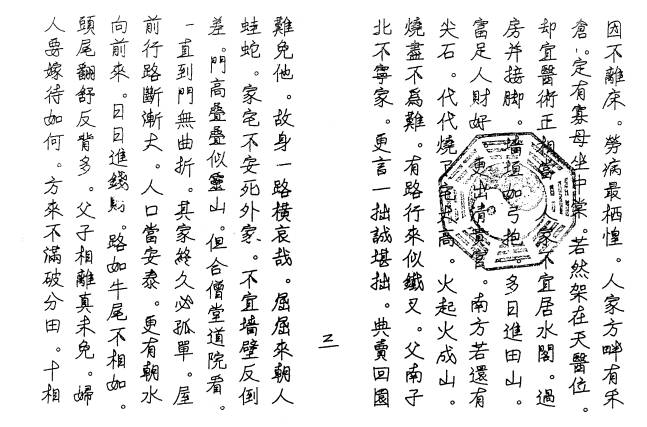 因不離床。勞病最栖惶。人家方畔有禾
倉。定有寡母坐中棠。若然架在天醫位。
却宜醫術正相當。人家不宜居水閣。過
房并接脚。墻垣如弓抱。多日進田山。
富足人財好。更出清貴官。南方若還有
尖石。代代燒了宅丈高。火起火成山。
燒盡不爲難。有路行來似鐵叉。父南子
北不寧家。更言一拙誠堪拙。典賣回園
二
難免他。故身一路橫哀哉。屈屈來朝人
蛙蛇。家宅不安死外家。不宜墻壁反倒
差。門高疊疊似靈山。但合僧堂道院看。
一直到門無曲折。其家終久必孤單。屋
前行路斷漸大。人口當安泰。更有朝水
向前來。日日進錢財。路如牛尾不相如。
頭尾翻舒反背多。父子相離真未免。婦
人要嫁待如何。方來不滿破分田。十相